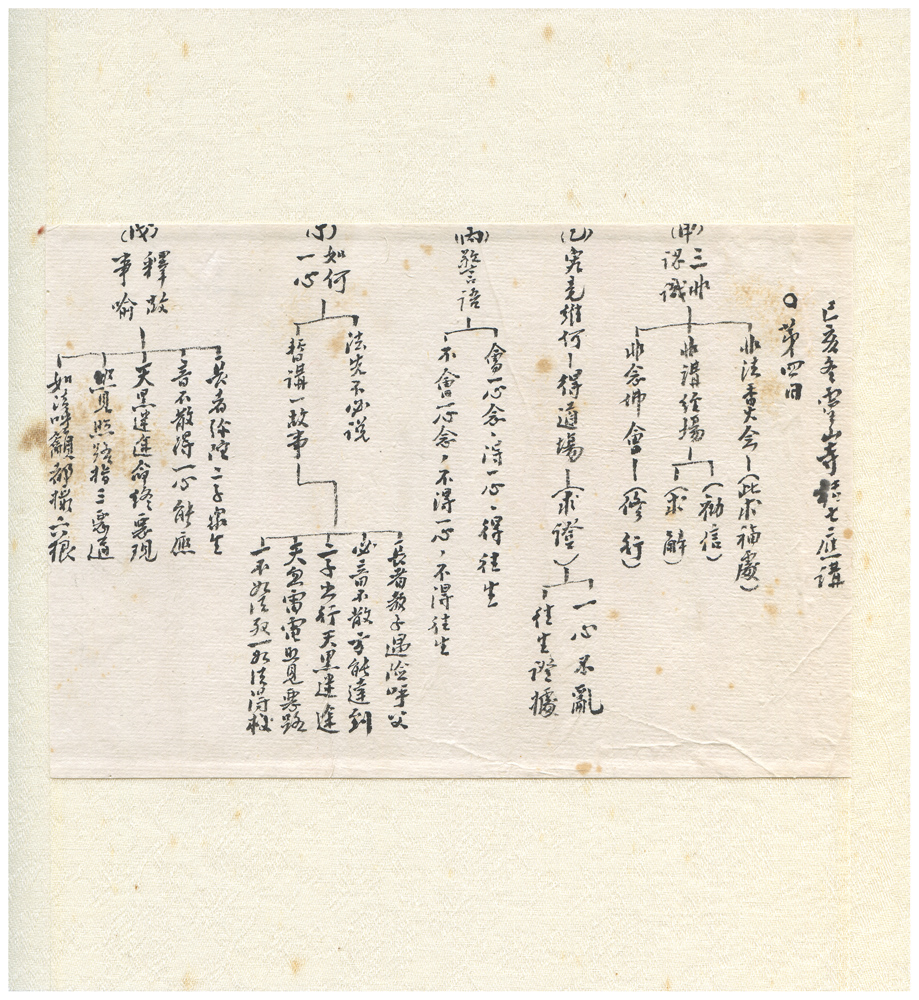 己亥冬靈山寺結七應講
○第四日
(甲)三非
認識
非法香火會(此求福處)
非講經場
(勸信)
(求解)
非念佛會(修行)
(乙)究竟維何 得道場(求證)
一心不亂
往生證據
(丙)警語
會一心念,得一心,得往生
不會一心念,不得一心,不得往生
(丁)如何
一心
法先不必說
暫講一故事
長者教子遇險呼父
必音不散方能達到
二子出行天黑迷途
天忽雷電照見惡路
一不如法死一如法得救
(戊)釋故
事喻
長者彌陀二子眾生
音不散得一心能應
天黑迷途命終惡現
照見照路指三惡道
如法呼籲都攝六根